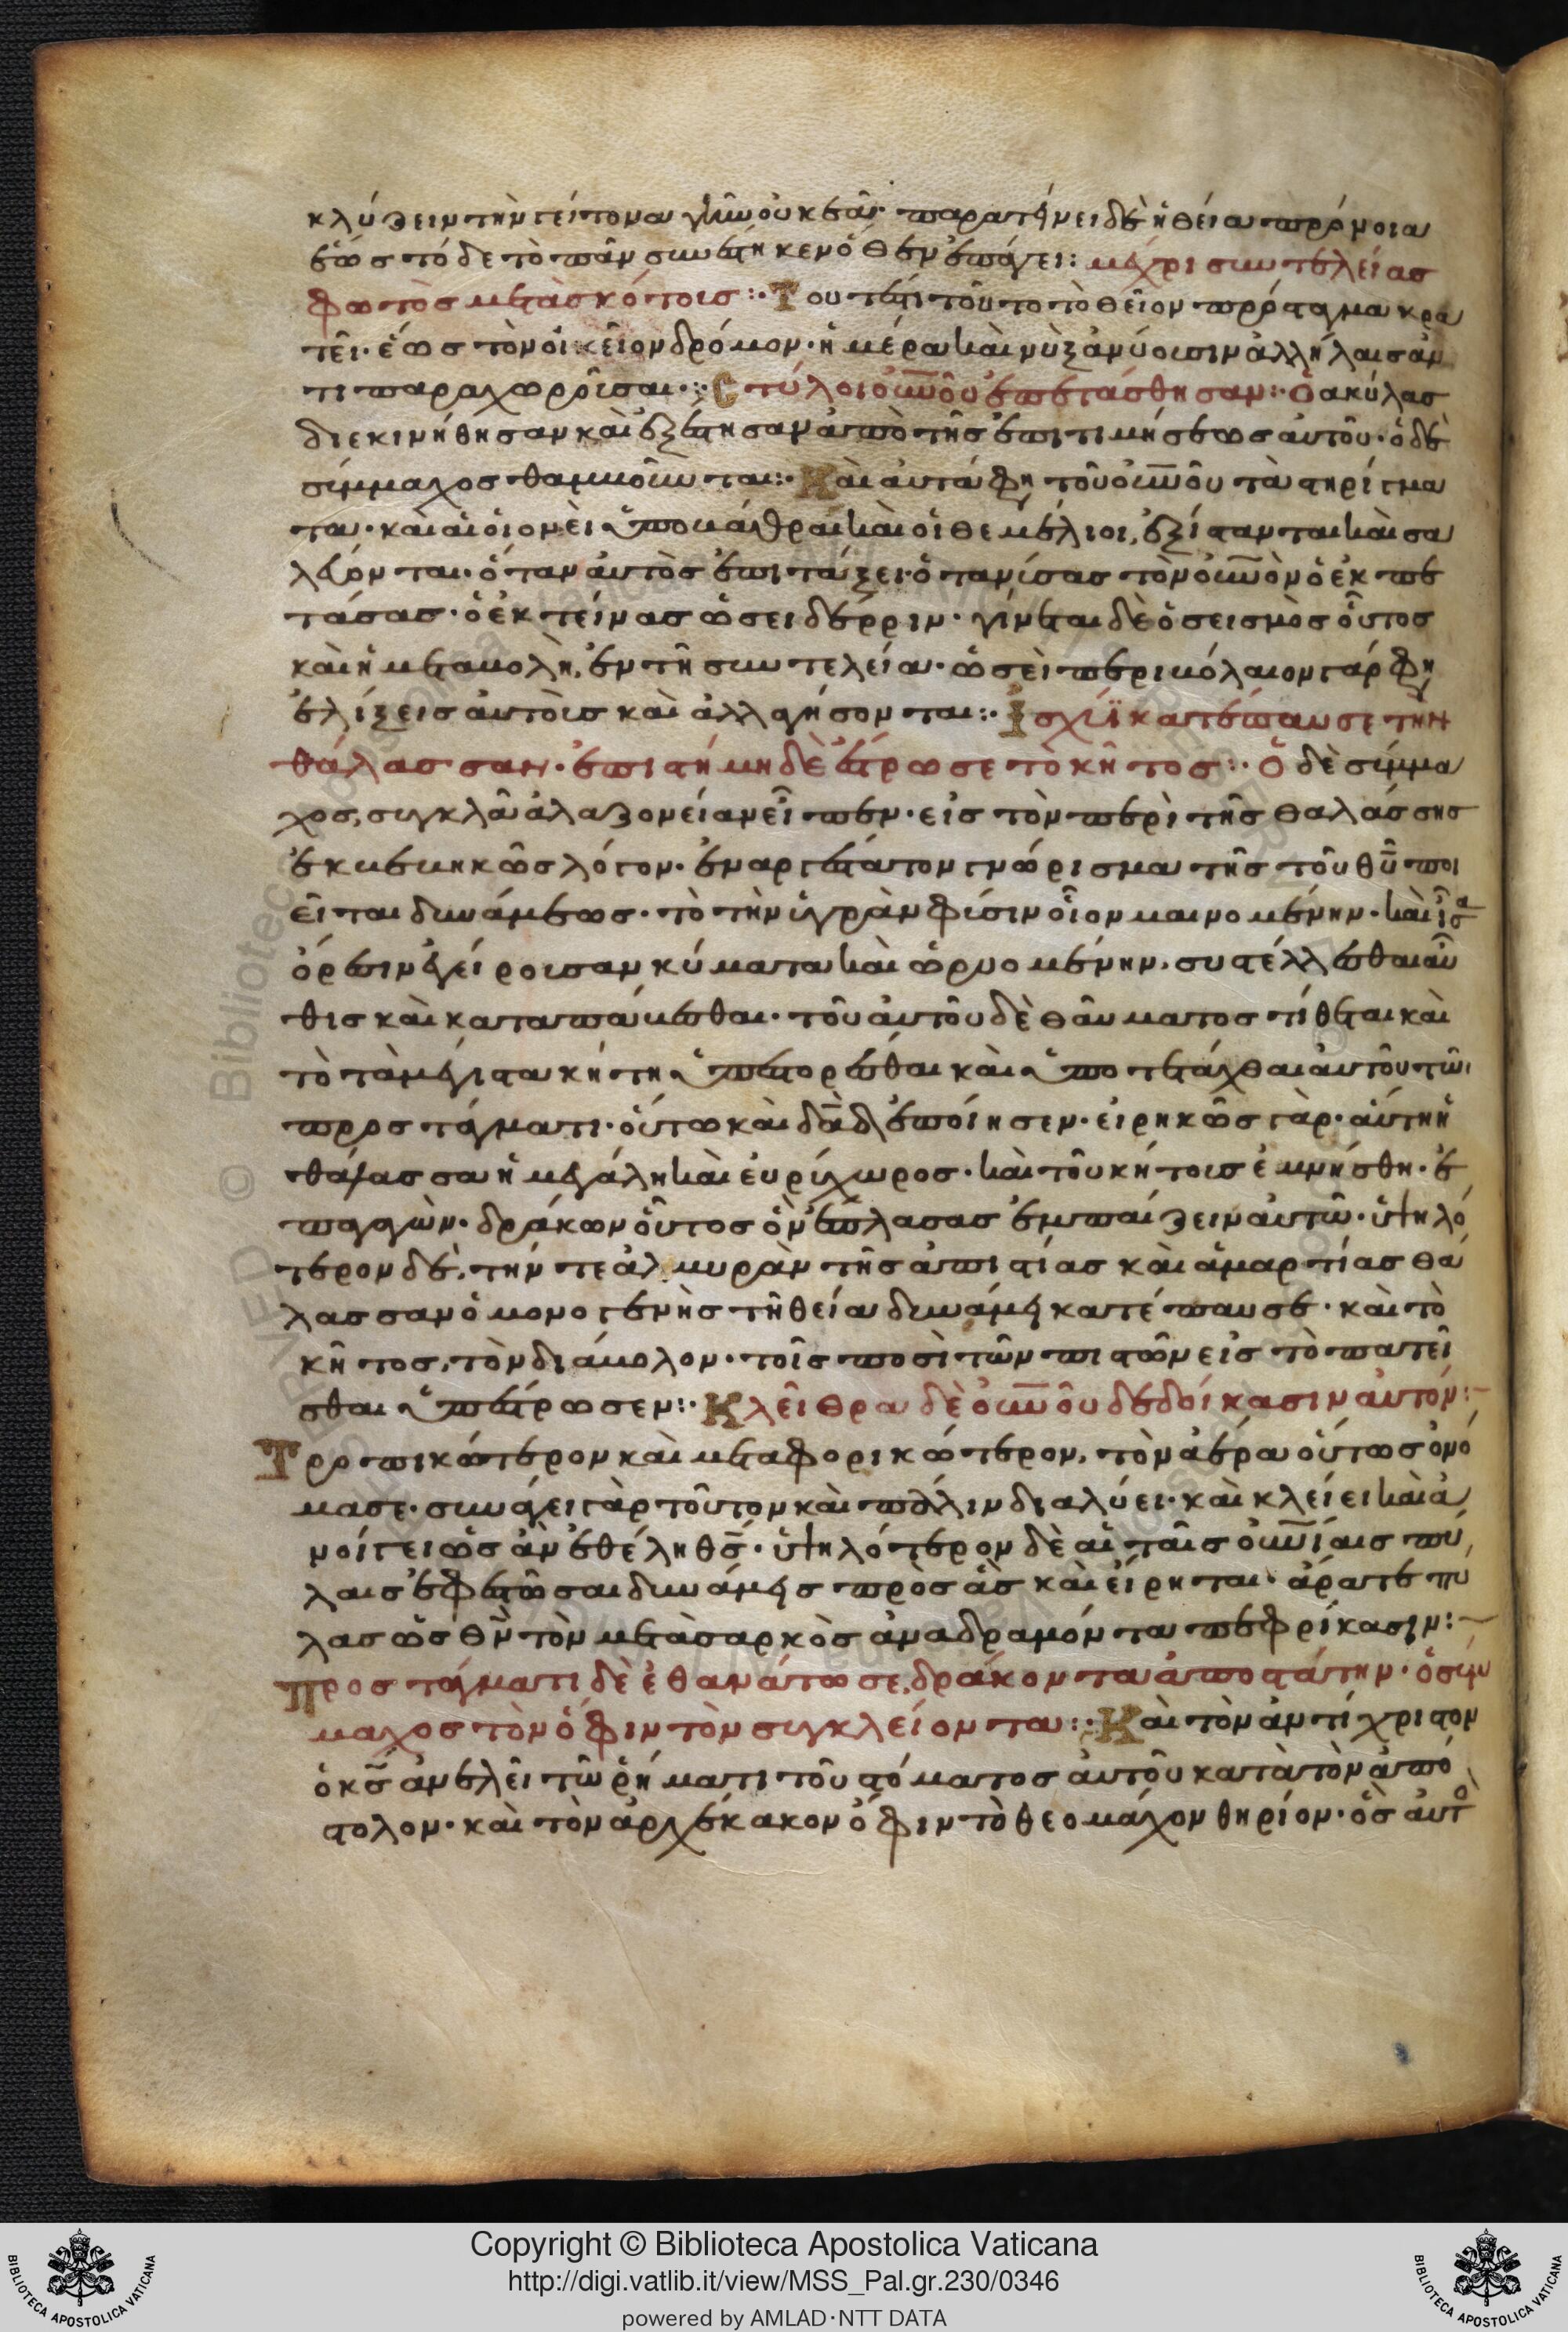 κλύζειν τὴν γείτονα γῆν οὐκ ἐᾶν· παρατείνει δὲ ἡ θεία πρόνοια
ἕως τόδε τὸ πᾶν συνέστηκεν ὅθεν ἐπάγει: μέχρι συντελείας
φωτὸς μετὰ σκότους:· Τουτέστι τοῦτο τὸ θεῖον πρόσταγμα κρα
τεῖ· ἕως τὸν οἰκεῖον δρόμον· ἡμέρα καὶ νὺξ ἀνύουσιν ἀλλήλαις ἀν
τιπαραχωροῦσαι·:· Στύλοι οὐνοῦ ἐπετάσθησαν:· Ὁ ἀκύλας
διεκινήθησαν καὶ ἐξέστησαν ἀπὸ τῆς ἐπιτιμήσεως αὐτοῦ· ὁ δὲ
σύμμαχος θαμβοῦνται:· Καὶ αὐτά φη τοῦ οὐνοῦ τὰ στηρίγμα
τα· καὶ αἱ οἱονεὶ ὑποβάθραι καὶ οἱ θεμέλιοι, ἐξίστανται καὶ σα
λεύονται· ὅταν αὐτὸς ἐπιτάξει· ὁ τανύσας τὸν οὐνὸν ὁ ἐκπε
τάσας· ὁ ἐκτείνας ὡσεὶ δέρριν· γίνεται δὲ ὁ σεισμὸς οὗτος
καὶ ἡ μεταβολὴ, ἐν τῇ συντελεία· ὡσεὶ περιβόλαιον γάρ φη
ἑλίξεις αὐτοὺς καὶ ἀλλαγήσονται:· Ἰσχύϊ κατέπαυσε τὴν
θάλασσαν· ἐπιστήμη δὲ ἔτρωσε τὸ κῆτος:· Ὁ δὲ σύμμα
χος, συγκλᾶ ἀλαζονείαν εἶπεν· εἰς τὸν περὶ τῆς θαλάσσης
ἐκβεβηκὼς λόγον· ἐναργέστατον γνώρισμα τῆς τοῦ θῦ ποι
εῖται δυνάμεως· τὸ τὴν ὑγρὰν φύσιν οἷον μαινομένην· καὶ
ὄρεσιν ἐγείρουσαν κύματα καὶ ὠρυομένην, συστέλλεσθαι αὖ
θις καὶ καταπαύεσθαι· τοῦ αὐτοῦ δὲ θαύματος τίθεται καὶ
τὸ τὰ μέγιστα κήτη ὑπεστορέσθαι καὶ ὑποτετάχθαι αὐτοῦ τῶι
προστάγματι· οὕτω καὶ δᾱδ ἐποίησεν· εἰρηκὼς γὰρ· αὕτη ἡ
θάλασσα ἡ μεγάλη καὶ εὐρύχωρος· καὶ τοῦ κήτους ἐμνήσθη· ἐ
παγαγὼν· δράκων οὗτος ὃν ἔπλασας ἐμπαίζειν αὐτῷ· ὑψηλό
τερον δὲ, τήν τε ἁλμυρὰν τῆς ἀπιστίας καὶ ἁμαρτίας θά
λασσαν ὁ μονογενὴς τῇ θεία δυνάμει κατέπαυσε· καὶ τὸ
κῆτος, τὸν διάβολον· τοῖς ποσὶ τῶν πιστῶν εἰς τὸ πατεῖ
σθαι ὑπέστρωσεν:· Κλεῖθρα δὲ οὐνοῦ δεδοίκασιν αὐτόν:
Τροπικώτερον καὶ μεταφορικώτερον, τὸν ἀέρα οὕτως ὀνό
μασε· συνάγει γὰρ τοῦτον καὶ πάλιν διαλύει· καὶ κλείει καὶ ἀ
νοίγει ὡς ἂν ἐθέλη θς̄· ὑψηλότερον δὲ αἱ ταῖς οὐνίαις πύ
λαις ἐφεστῶσαι δυνάμεις πρὸς ἃς καὶ εἴρηται· ἄρατε πύ
λας ὡς θν̄ τὸν μετὰ σαρκὸς ἀναδραμόντα πεφρίκασιν:
Προστάγματι δὲ ἐθανάτωσε, δράκοντα ἀποστάτην· ὁ σύμ
μαχος τὸν ὄφιν τὸν συγκλείοντα:· Καὶ τὸν ἀντίχριστον
ὁ κς̄ ἀνελεῖ τῷ ῥήματι τοῦ στόματος αὐτοῦ κατὰ τὸν ἀπό
στολον· καὶ τὸν ἀρχέκακον ὄφιν τὸ θεομάχον θηρίον· ὃς αὐτὸ
Copyright © Biblioteca Apostolica Vaticana
http://digi.vatlib.it/view/MSS_Pal.gr.230/0346
powered by AMLAD·NTT DATA
BIBLIOTECA APOSTOLICA VATICANA
BIBLIOTECA APOSTOLICA VATICANA